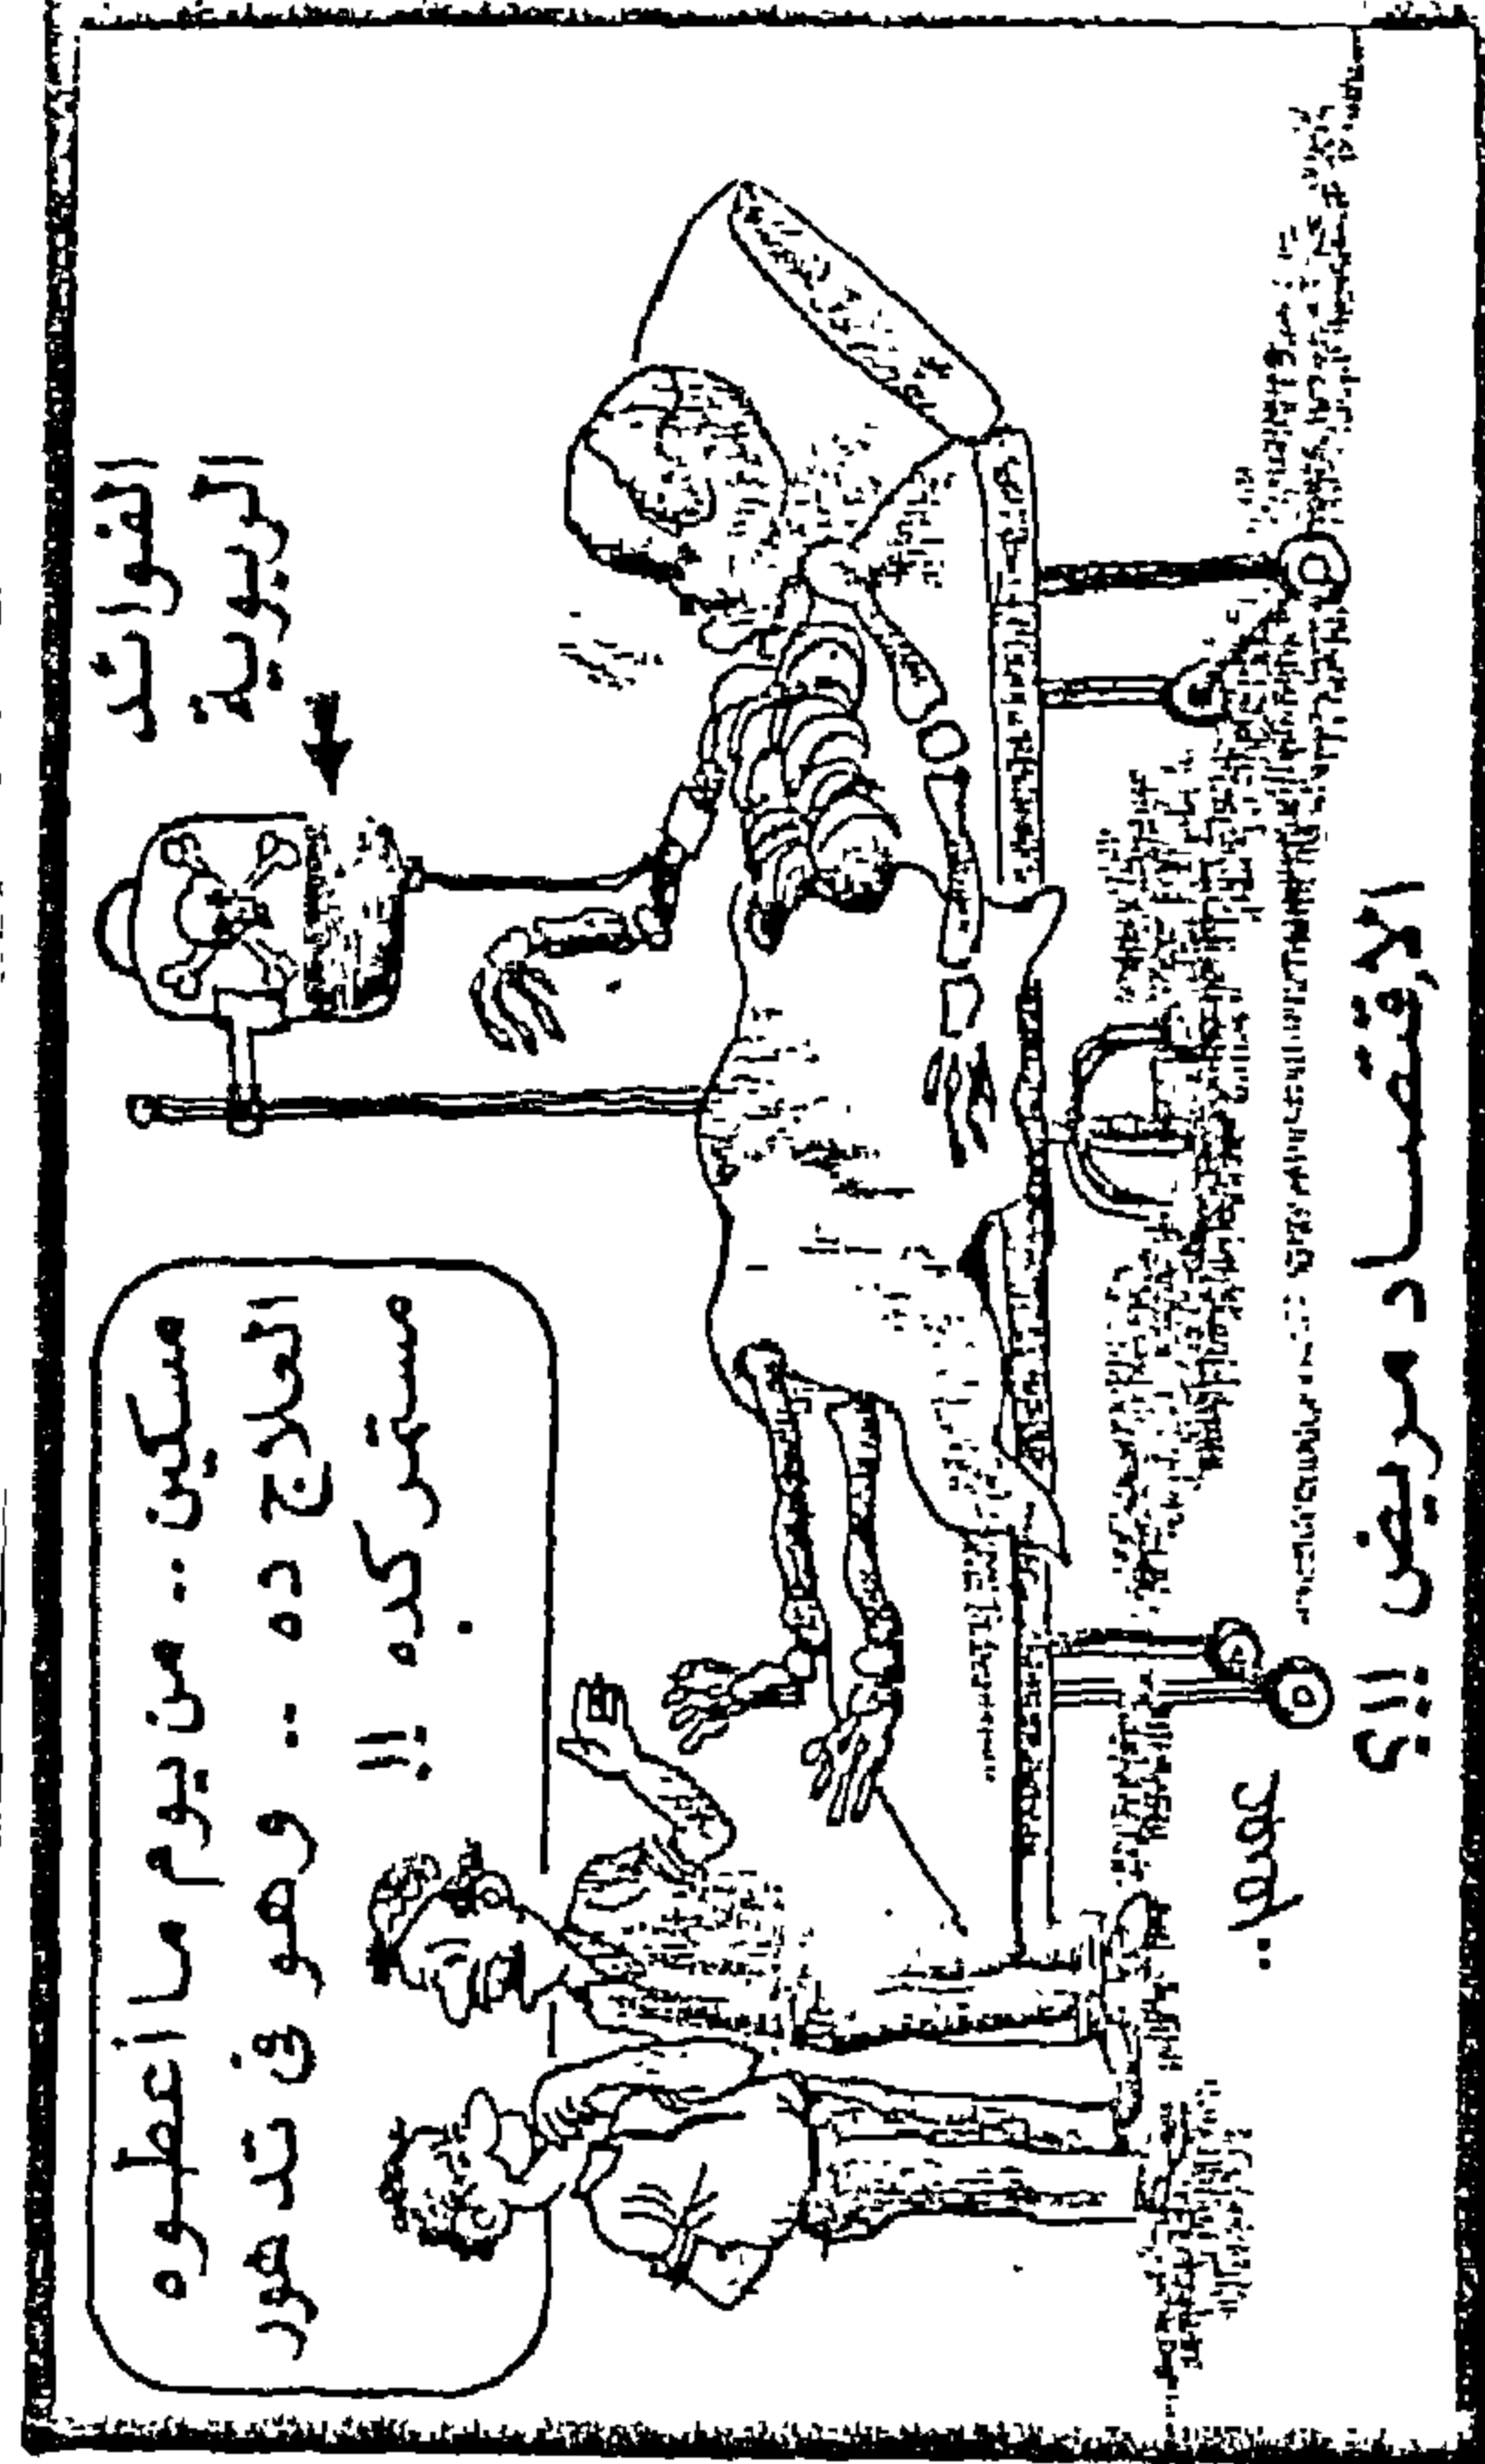 الفوائد
الربوية
مسكين .. من يوم ما اعطوه
العلاج ده .. وهو فى تدهور
مستمر كده !!
الاقتصاد مريض !!؟